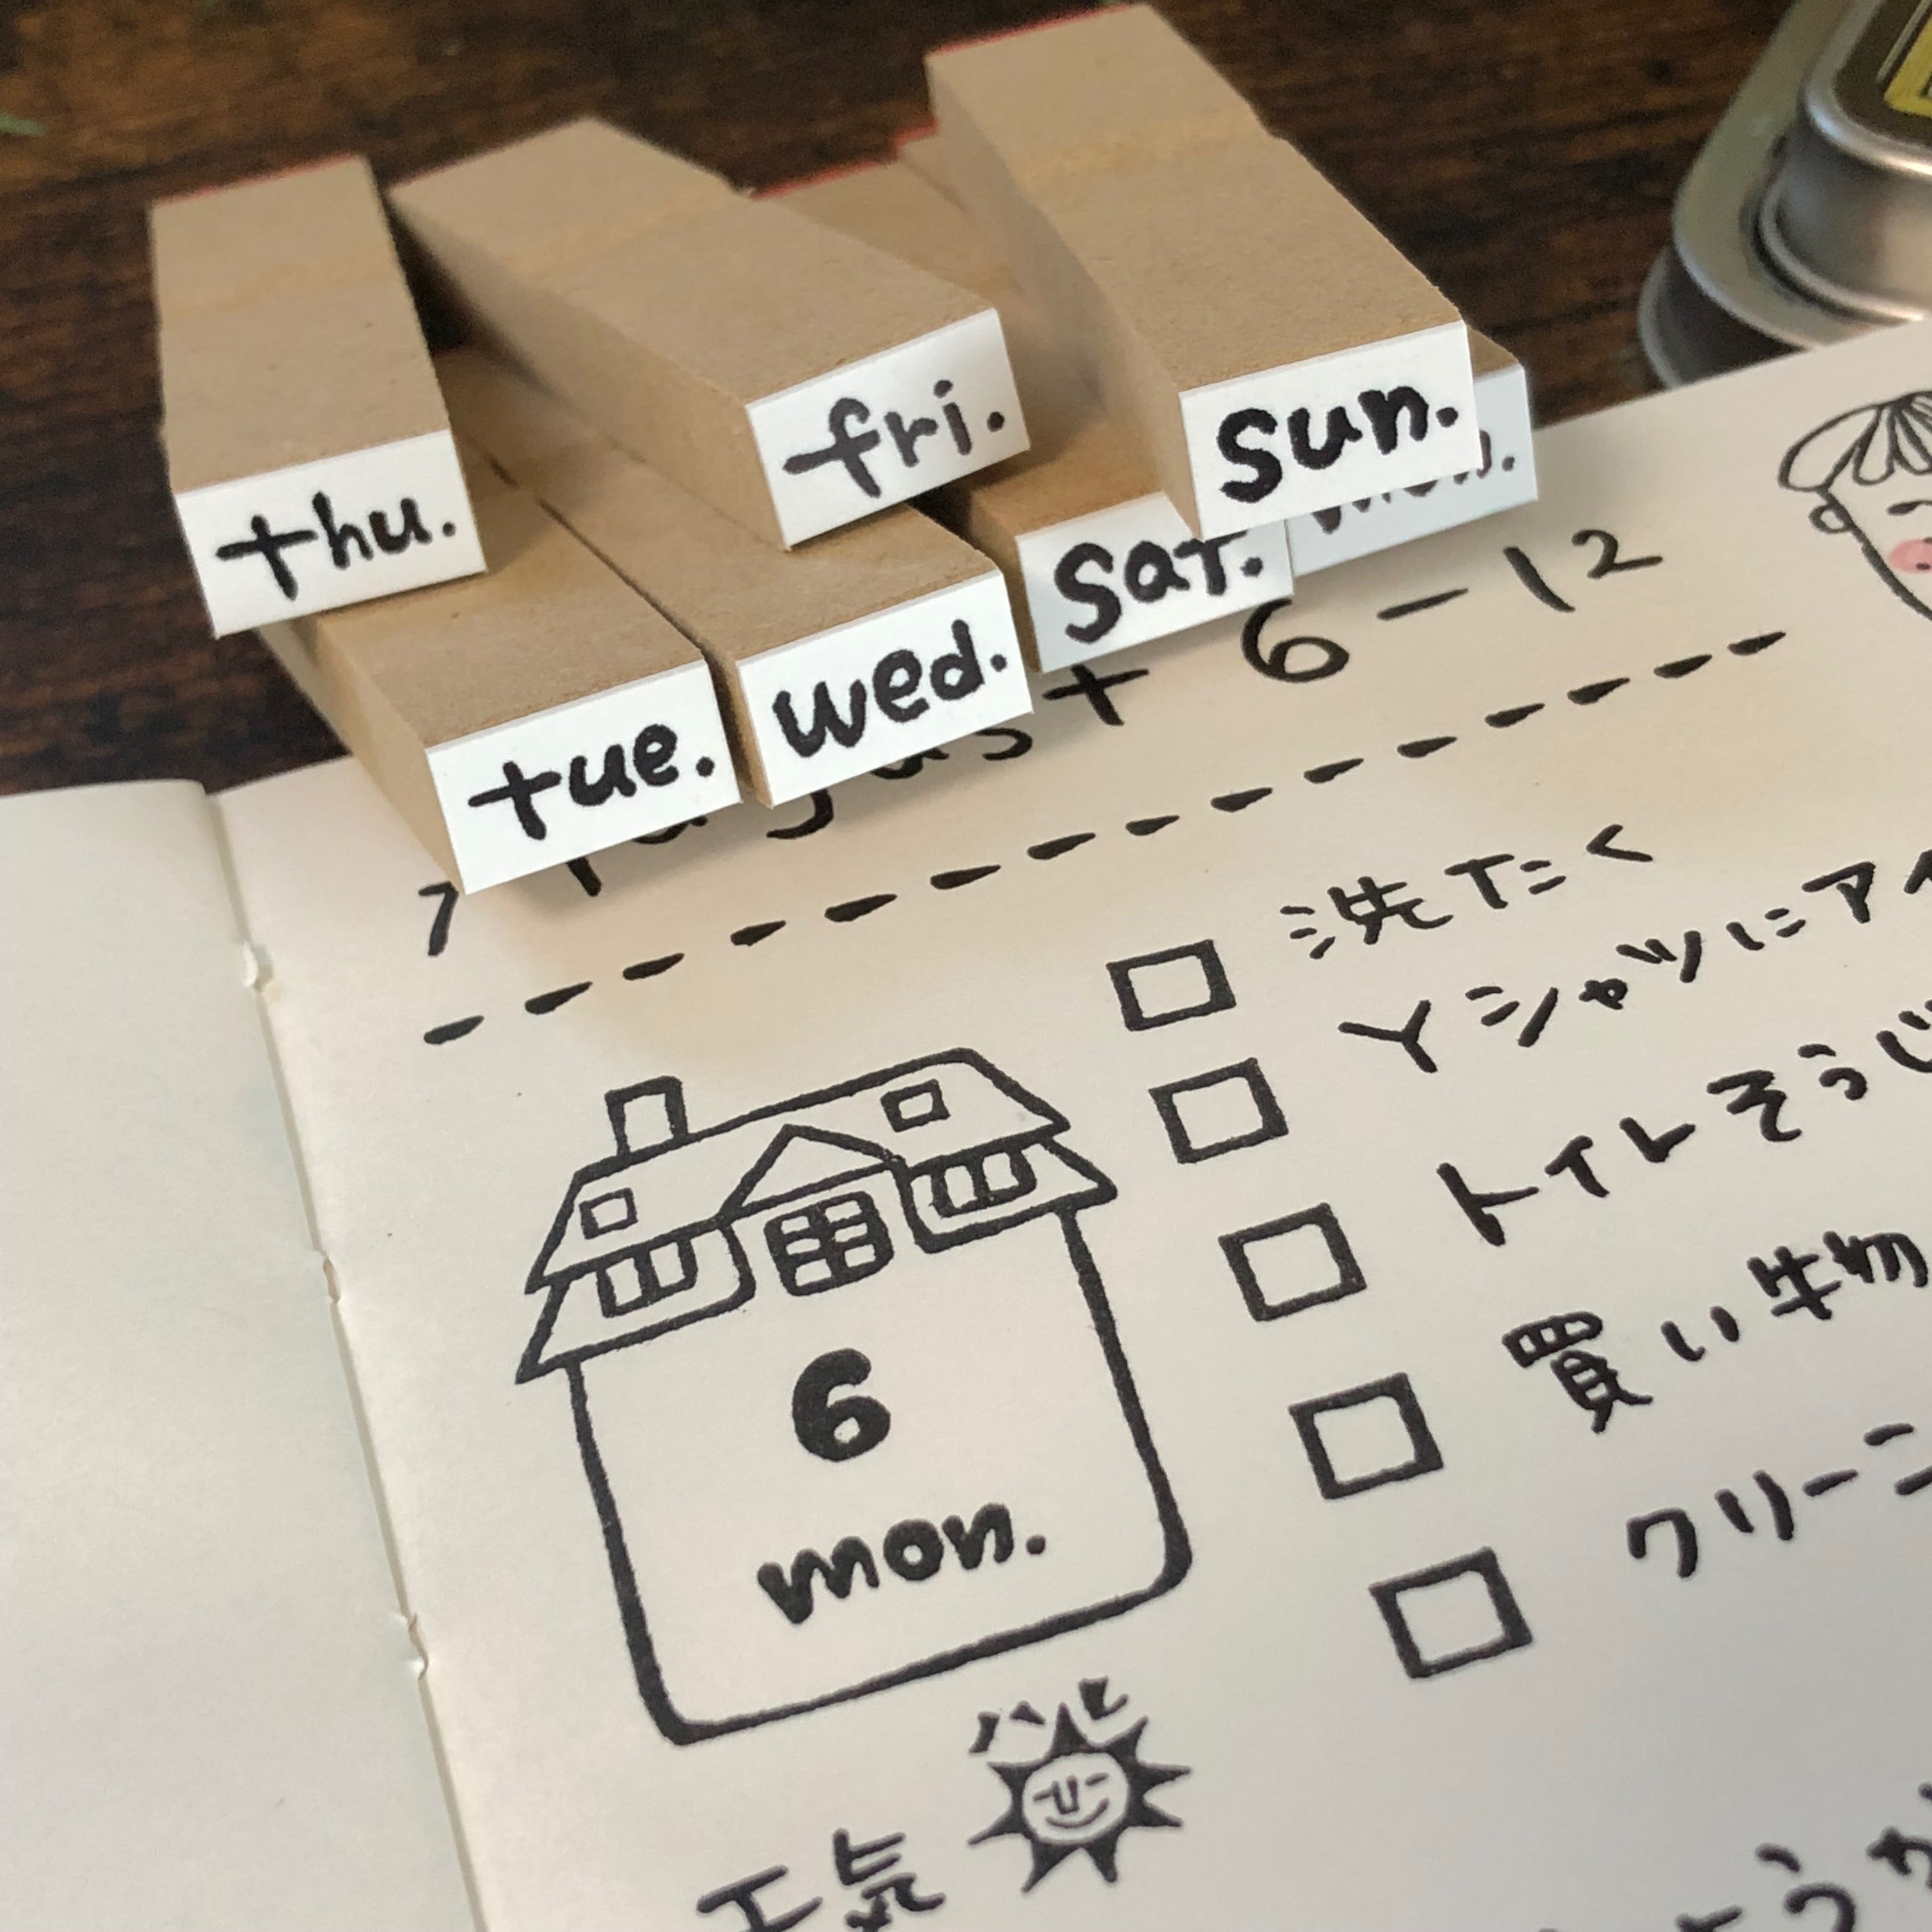 thu.
fri.
sun.
tue.
wed.
sat.
mon.
7
6-12
洗たく
Yシャツにア
トイレそうじ
買い物
クリーニ
6
mon.
ハレ